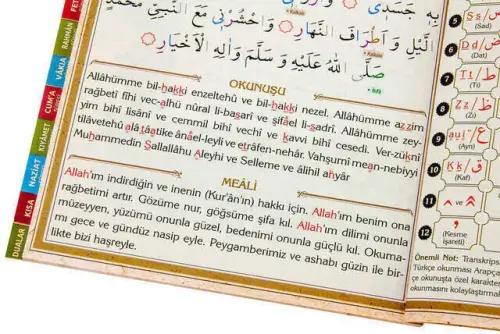 بِهِ جَسَدِى
وَاحْشُرْنِى مَعَ النَّبِىِّ مُحَمَّدٍ
الَّيْلِ وَ اَطْرَافَ النَّهَارِ
صَلَّى اللّٰهُ عَلَيْهِ وَ سَلَّمَ وَاٰلِهِ الْاَخْيَارِ
OKUNUŞU
Allâhümme bil-hakkı enzeltehû ve bil-hakkı nezel. Allâhümme azzim
rağbetî fîhi vec-alhü nûral li-basarî ve şifâel li-sadrî. Allâhümme zey-
yim bihî lisânî ve cemmil bihî vechî ve kavvi bihî cesedî. Ver-züknî
tilâvetehû alâ tâatike ânâel-leyli ve etrâfen-nehâr. Vahşurnî mean-nebiyyi
Muhammedin Sallallâhu Aleyhi ve Selleme ve âlihil ahyâr
MEÂLİ
Allah'ım indirdiğin ve inenin (Kur'ân'ın) hakkı için. Allah'ım benim ona
rağbetimi artır. Gözüme nur, göğsüme şifa kıl. Allah'ım dilimi onunla
müzeyyen, yüzümü onunla güzel, bedenimi onunla güçlü kıl. Okuma-
mı gece ve gündüz nasip eyle. Peygamberimiz ve ashabı güzin ile bir-
likte bizi haşreyle.
RAHMAN
VÂKIA
CUM'A
KIYÂMET
NAZİAT
KISA
DUALAR
5 S s / ص
(Sad)
6 D d / ض
(Dat)
7 T t / ط
(Tı)
8 Z z / ظ
(Zı)
9
(Ayn)
10 K k / ق
(Kaf)
11 ^ ve
12
(Kesme
işareti)
Önemli Not: Transkrips
Türkçe okunması Arapça
çe okunuşta özel karakte
okunmasını kolaylaştırmak